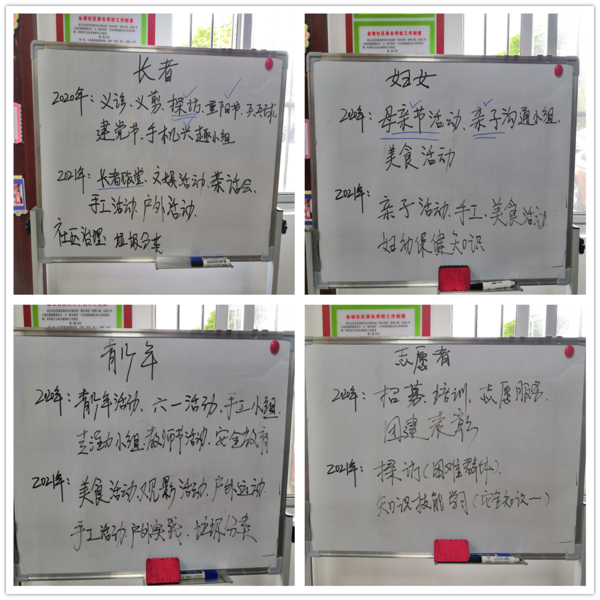 长者
2020年：义诊、义剪、探访、重阳节、乒乓球
建党节、手机兴趣小组
2021年：长者饭堂、文娱活动、茶话会、
手工活动、户外活动、
社区治理 垃圾分类
妇女
2020年：母亲节活动、亲子沟通小组、
美食活动
2021年：亲子活动、手工、美食活动
妇幼保健知识
青少年
2020年：青少年活动、六一活动、手工小组、
专注力小组、教师节活动、安全教育
2021年：美食活动、观影活动、户外运动
手工活动、户外实践、垃圾分类
志愿者
2020年：招募、培训、志愿服务、
团建、表彰
2021年：探访（困难群体）、
知识技能学习（安全知识一）